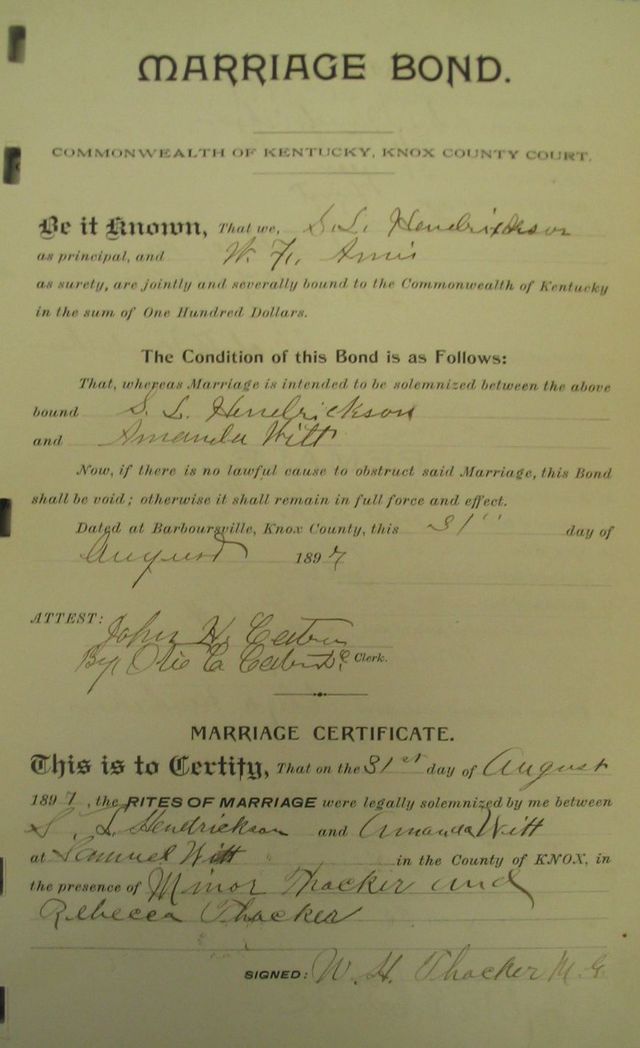 MARRIAGE BOND.
COMMONWEALTH OF KENTUCKY, KNOX COUNTY COURT.
Be it Known, That we, S. L. Hendrickson
as principal, and W. F. Amis
as surety, are jointly and severally bound to the Commonwealth of Kentucky
in the sum of One Hundred Dollars.
The Condition of this Bond is as Follows:
That, whereas Marriage is intended to be solemnized between the above
bound S. L. Hendrickson
and Amanda Witt
Now, if there is no lawful cause to obstruct said Marriage, this Bond
shall be void; otherwise it shall remain in full force and effect.
Dated at Barboursville, Knox County, this 31" day of
August 1897
ATTEST: John H. Catron
By, Otie C Catron D.C. Clerk.
MARRIAGE CERTIFICATE.
This is to Certify, That on the 31st day of August
1897, the RITES OF MARRIAGE were legally solemnized by me between
S. L. Hendrickson and Amanda Witt
at Samuel Witt in the County of KNOX, in
the presence of Minor Thacker and
Rebecca Thacker
SIGNED: W. H. Thacker M. G.